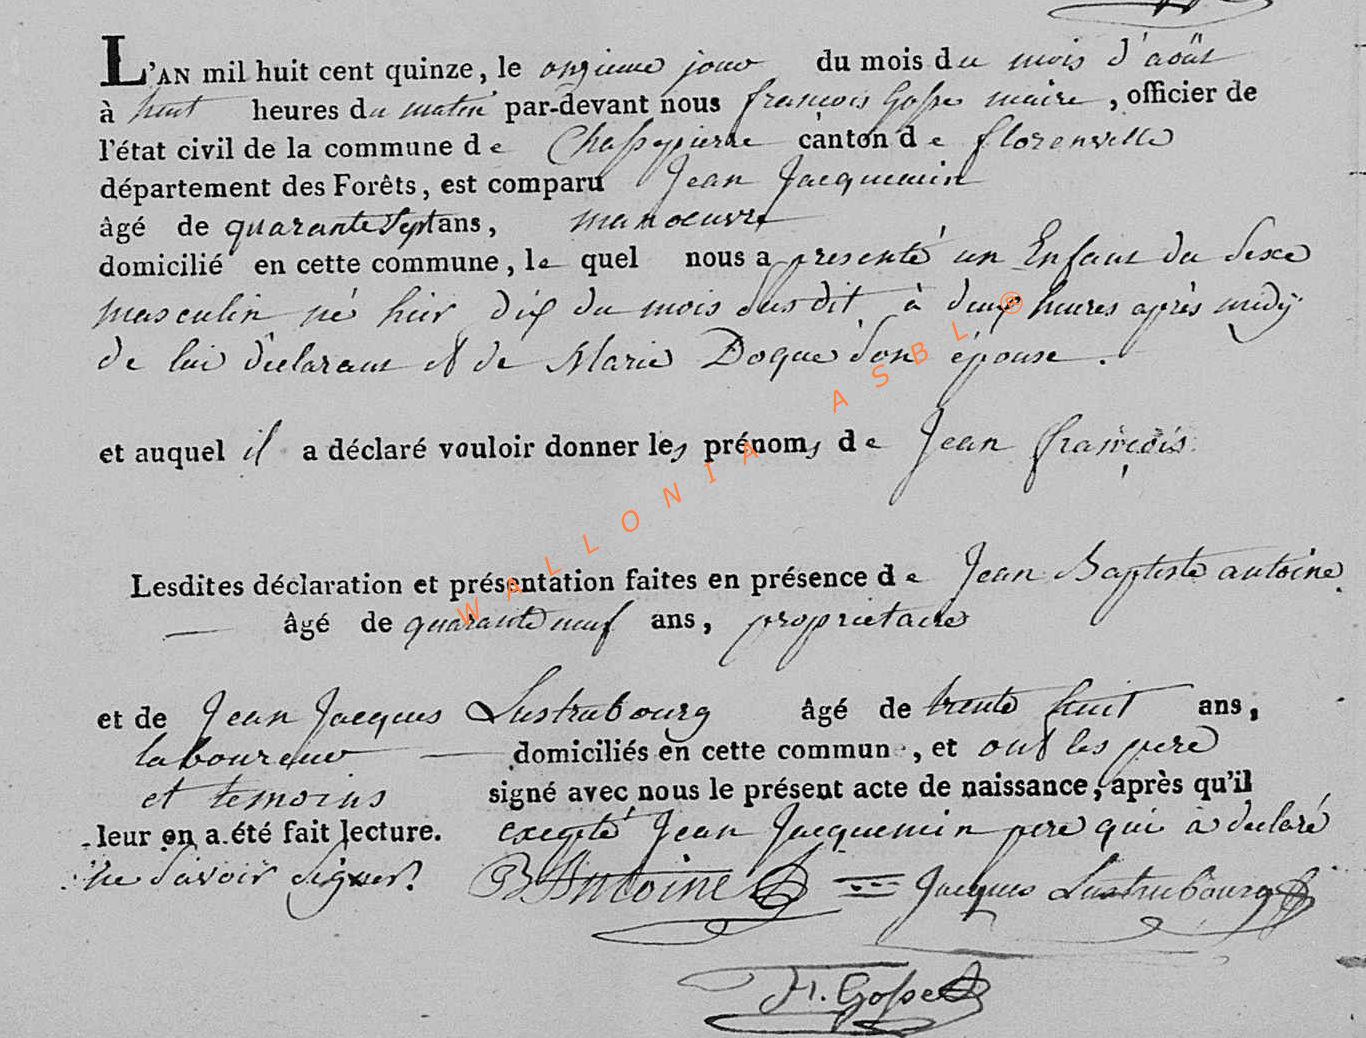 L'AN mil huit cent quinze, le onzieme jour du mois du mois d'août
à huit heures du matin par-devant nous françois Gosse maire, officier de
l'état civil de la commune de Chassepierre canton de florenville
département des Forêts, est comparu Jean Jacquemin
âgé de quarante sept ans, manoeuvre
domicilié en cette commune, le quel nous a presenté un Enfant du sexe
masculin né hier dix du mois susdit à deux heures après midÿ
de lui declarant et de Marie Doque son épouse.
et auquel il a déclaré vouloir donner les prénoms de Jean françois
Lesdites déclaration et présentation faites en présence de Jean Baptiste antoine
âgé de quarante neuf ans, proprietaire
et de Jean Jacques Lustrubourg âgé de trente huit ans,
laboureur domiciliés en cette commune, et ont les pere
et temoins signé avec nous le présent acte de naissance, après qu'il
leur en a été fait lecture. excepté Jean Jacquemin pere qui a declaré
ne savoir signer.
B Antoine Jacques Lustrubourg
F. Gosse
WALLONIA ASBL ®